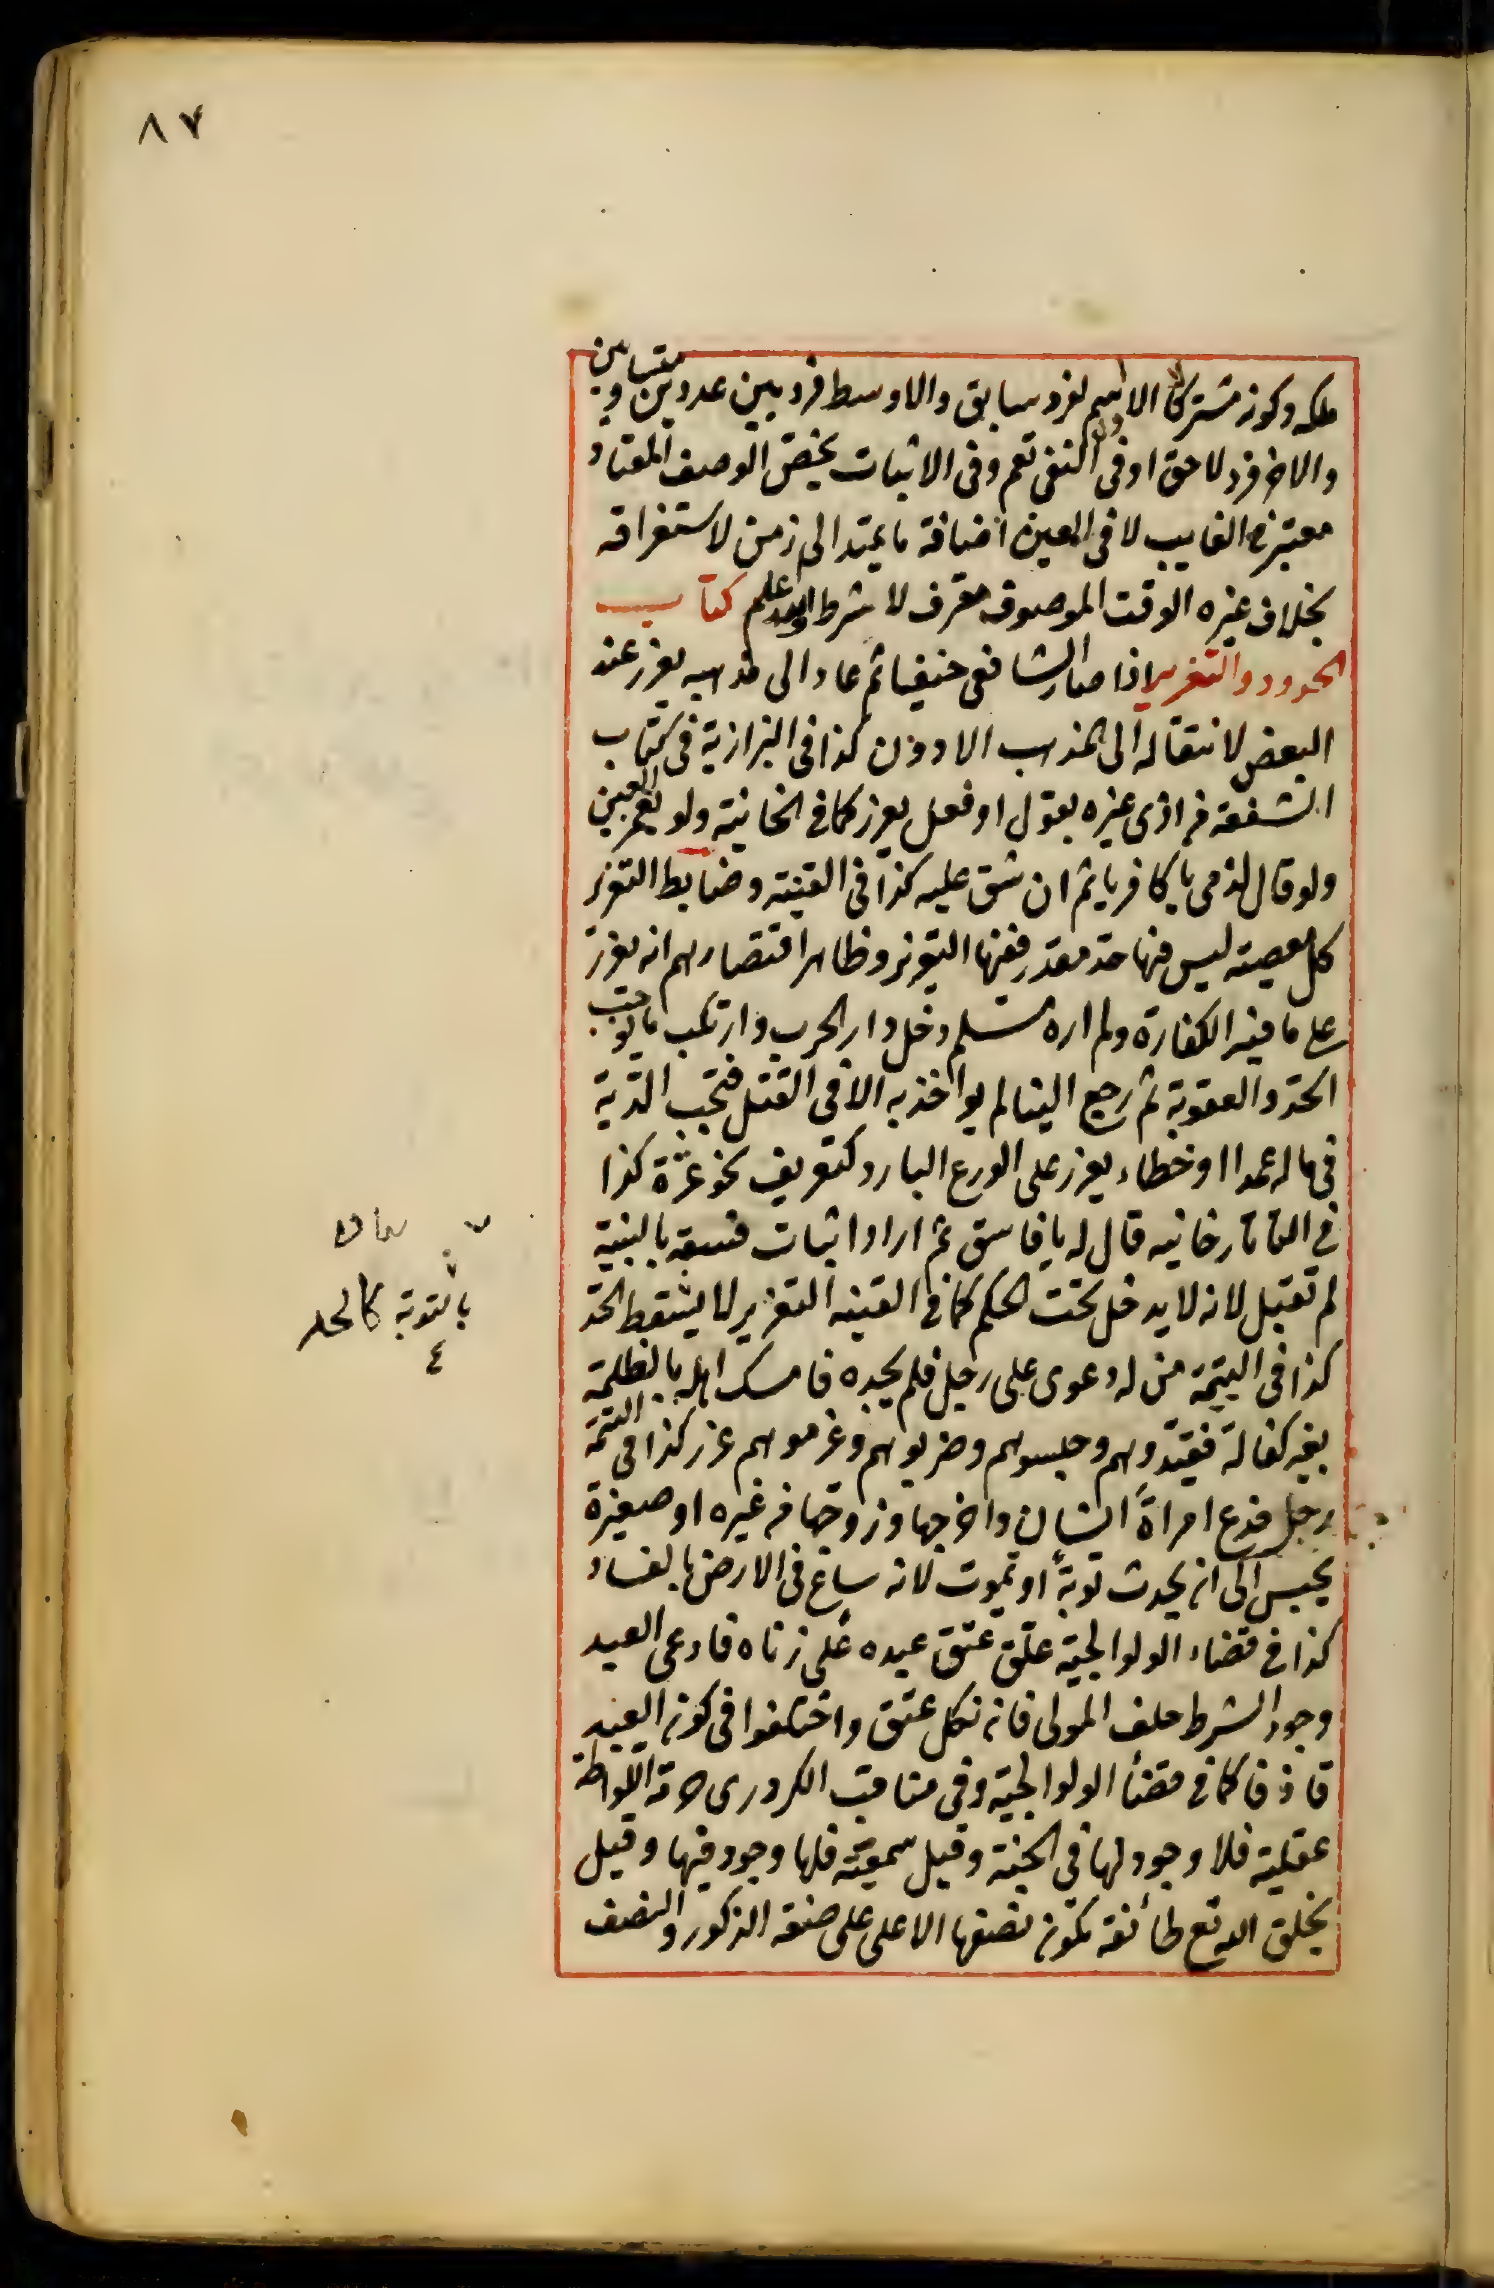 ٨٧
ملكه وكونه مشتركا الاول اسم لفرد سابق والاوسط فرد بين عددين متساويين
والاخر فرد لاحق او فى النفى تعم وفى الاثبات تخص الوصف المعتاد
معتبر فى الغايب لا فى العين اضافة ما يمتد الى زمن لاستغراقه
بخلاف غيره الوقت الموصوف معرف لا شرط والله اعلم كتاب
الحدود والتعزير اذا صار الشافعى حنفيا ثم عاد الى مذهبه يعزر عند
البعض لانتقاله الى المذهب الادون كذا فى البزازية فى كتاب
الشفعة من اذى غيره بقول او فعل يعزر كما فى الخانية ولو بغمز العين
ولو قال لذمى يا كافر ياثم ان شق عليه كذا فى القنية وضابط التعزير
كل معصية ليس فيها حد مقدر ففيها التعزير وظاهر اقتصارهم انه يعزر
على ما فيه الكفارة ولم اره مسلم دخل دار الحرب وارتكب ما يوجب
الحد والعقوبة ثم رجع الينا لم يواخذ به الا فى القتل فتجب الدية
فى ماله عمدا او خطاء يعزر على الورع البارد كتعريف نحو تمرة كذا
فى التاتارخانيه قال له يا فاسق ثم اراد اثبات فسقه بالبينة
لم تقبل لانه لا يدخل تحت الحكم كما فى القنيه التعزير لا يسقط الحد
بالتوبة كالحد
كذا فى اليتيمة من له دعوى على رجل فلم يجده فامسك اهله بالظلمة
بغير كفالة فقيدوهم وحبسوهم وضربوهم وغرموهم عزر كذا فى اليتيمة
رجل خدع امراة انسان واخرجها وزوجها من غيره او صغيرة
يحبس الى ان يحدث توبة او يموت لانه ساع فى الارض بالفساد
كذا فى قضاء الولوالجية علق عتق عبده على زناه فادعى العبد
وجود الشرط حلف المولى فان نكل عتق واختلفوا فى كون العبد
قاذفا كما فى قضاء الولوالجية وفى مناقب الكردرى حرمة اللواطة
عقلية فلا وجود لها فى الجنة وقيل سمعية فلها وجود فيها وقيل
يخلق الله تع طائفة تكون نصفها الاعلى على صفة الذكور والنصف